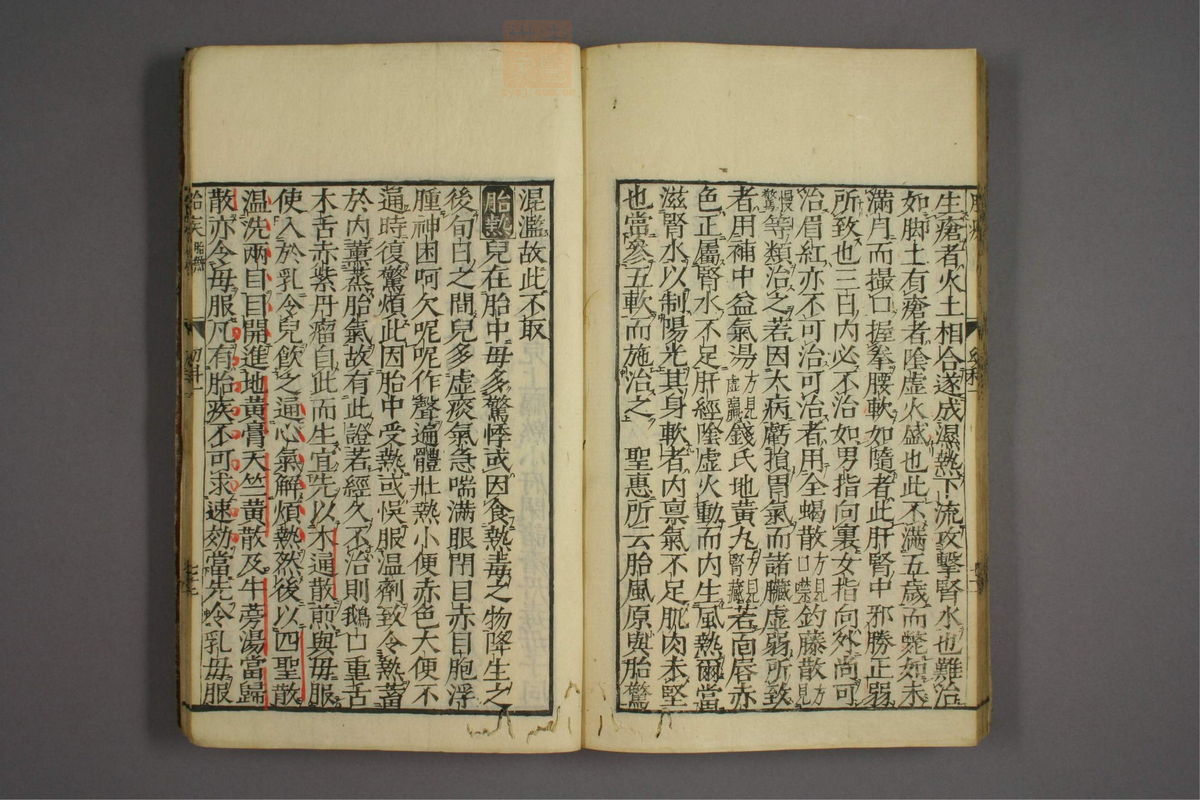 生瘡者火土相合遂成濕熱下流攻擊腎水也難治
如脚上有瘡者陰虛火盛也此不滿五歲而斃如未
滿月而撮口握拳腰軟如隨者此肝腎中邪勝正弱
所致也三日內必不治如男指向裏女指向外尚可
治眉紅亦不可治可治者用全蝎散方見口噤釣藤散方見
慢驚等類治之若因大病虧損胃氣而諸臟虛弱所致
者用補中益氣湯方見虛羸錢氏地黃丸方見腎臟若面唇赤
色正屬腎水不足肝經陰虛火動而內生風熱爾當
滋腎水以制陽光其身軟者內稟氣不足肌肉未堅
也當參五軟而施治之 聖惠所云胎風原與胎驚
混濫故此不取
胎熱兒在胎中母多驚悸或因食熱毒之物降生之
後旬日之間兒多虛痰氣急喘滿眼閉目赤目胞浮
腫神困呵欠呢呢作聲遍體壯熱小便赤色大便不
通時復驚煩此因胎中受熱或悞服溫劑致令熱蓄
於內薰蒸胎氣故有此證若經久不治則鵝口重舌
木舌赤紫丹瘤自此而生宜先以木通散煎與母服
使入於乳令兒飲之通心氣解煩熱然後以四聖散
溫洗兩目目開進地黃膏天竺黃散及牛蒡湯當歸
散亦令母服凡有胎疾不可求速効當先令乳母服
胎疾 胎熱
幼科一